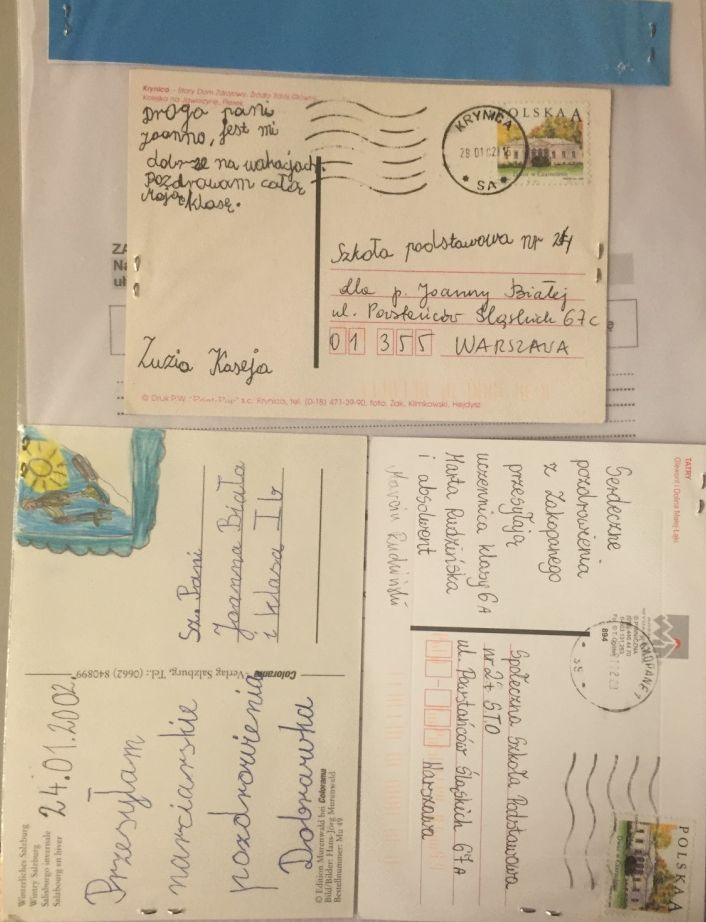 Krynica - Stary Dom Zdrojowy, Źródło Zdrój Główny,
Kolejka na Jaworzynę, Pijalk
Droga pani
Joanno, jest mi
dobrze na wakacjach.
Pozdrawam całą
Moją klasę.
Zuzia Kaseja
© Druk P.W. "Print-Pap" s.c. Krynica, tel. (0-18) 471-39-90, foto. Żak, Klimkowski, Hejdysz
POLSKA A
KRYNICA
SA
Szkoła podstawowa nr 24
dla p. Joanny Białej
ul. Powstańców Śląskich 67c
01 355 WARSZAWA
Sz. Pani
Joanna Biała
i klasa I b
Coloram
Verlag Salzburg, Tel.: (0662) 840899
24.01.2002
Przesyłam
narciarskie
pozdrowienia
Dobrawka
Winterliches Salzburg
Wintry Salzburg
Salisburgo invernale
Salzbourg en hiver
© Edition Murenwald bei Colorama
Bild/Bilder: Hans-Jörg Murenwald
Bestellnummer: Mu 49
TATRY
Giewont i Dolina Małej Łąki.
Serdeczne
pozdrowienia
z Zakopanego
przesyłają
uczennica klasy 6A
Marta Rudzińska
i absolwent
Marcin Rudziński
894
Społeczna Szkoła Podstawowa
nr 24 STO
ul. Powstańców Śląskich 67A
Warszawa
POLSKA A